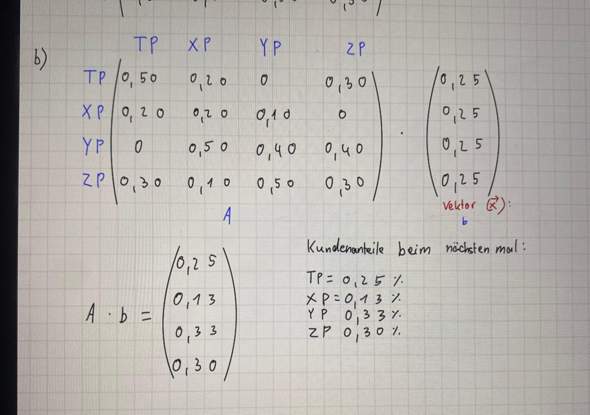 b)
TP XP YP ZP
TP 0,50 0,20 0 0,30 0,25
XP 0,20 0,20 0,10 0 · 0,25
YP 0 0,50 0,40 0,40 0,25
ZP 0,30 0,10 0,50 0,30 0,25
A Vektor (x⃗):
b
Kundenanteile beim nächsten mal:
A · b = 0,25
0,13
0,33
0,30
TP = 0,25 %
XP = 0,13 %
YP 0,33 %
ZP 0,30 %